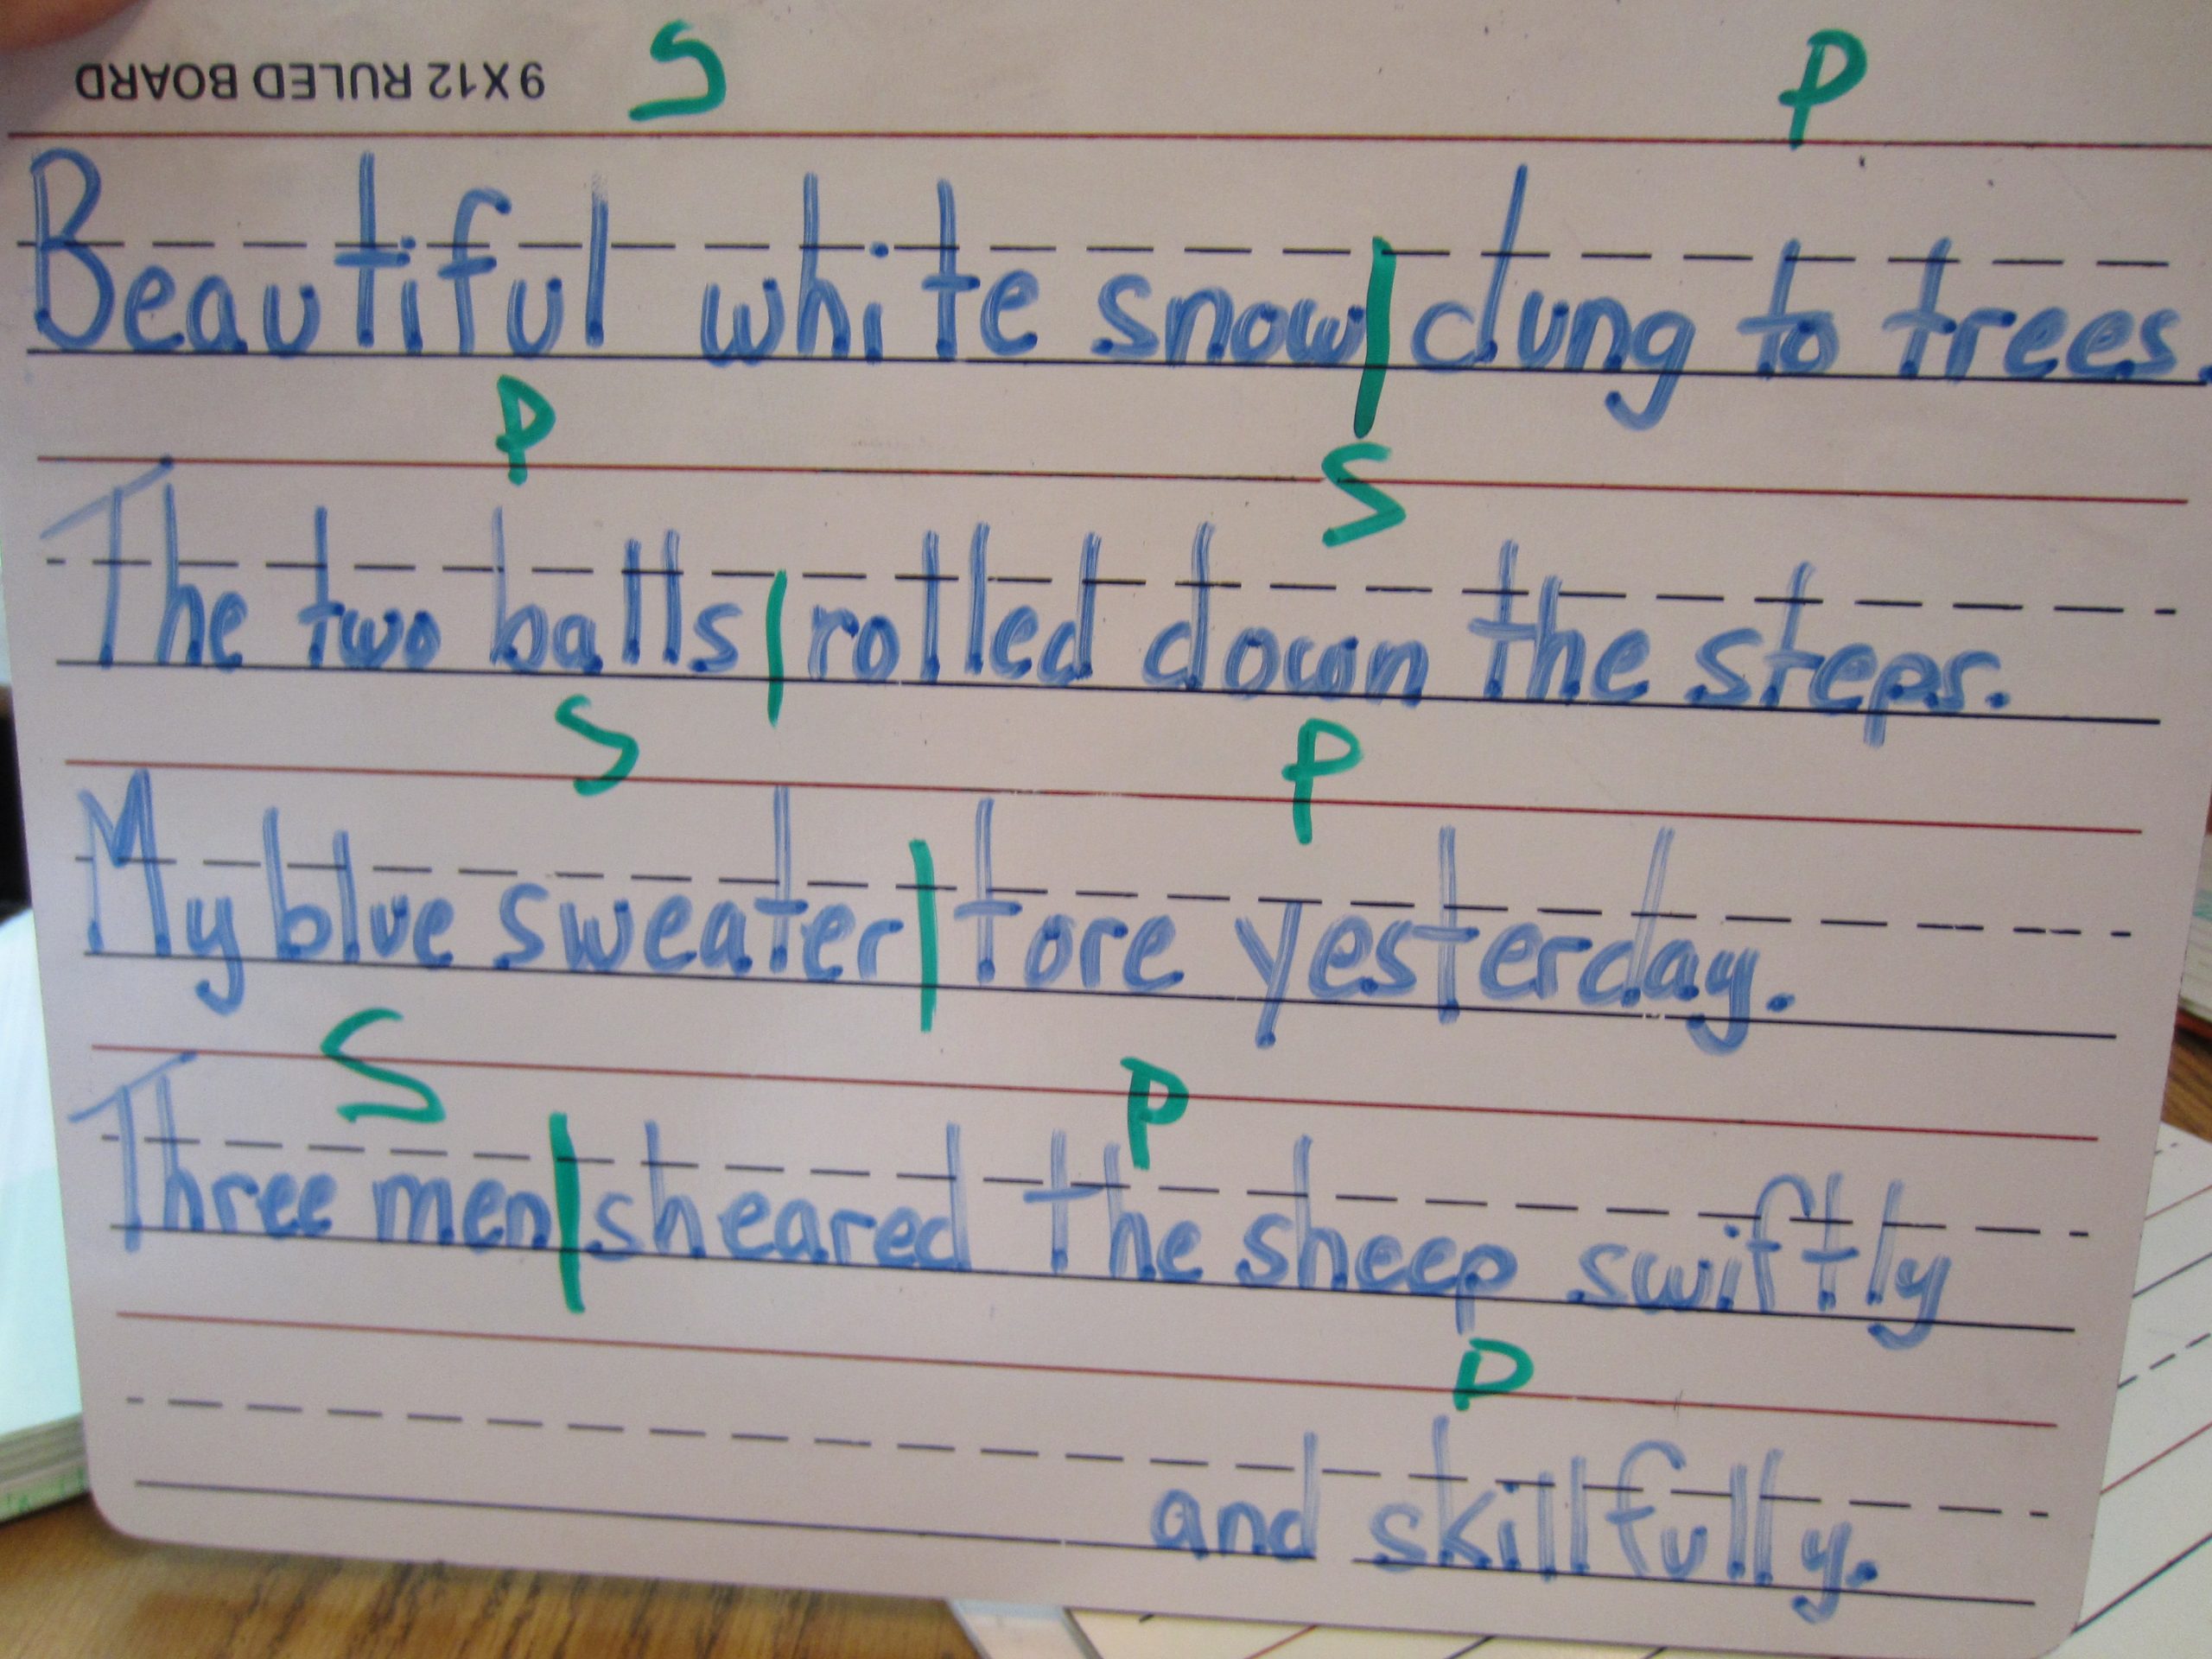 9X12 RULED BOARD
S P
Beautiful white snow | clung to trees.
P S
The two balls | rolled down the steps.
S P
My blue sweater | tore yesterday.
S P
Three men | sheared the sheep swiftly
P
and skillfully.